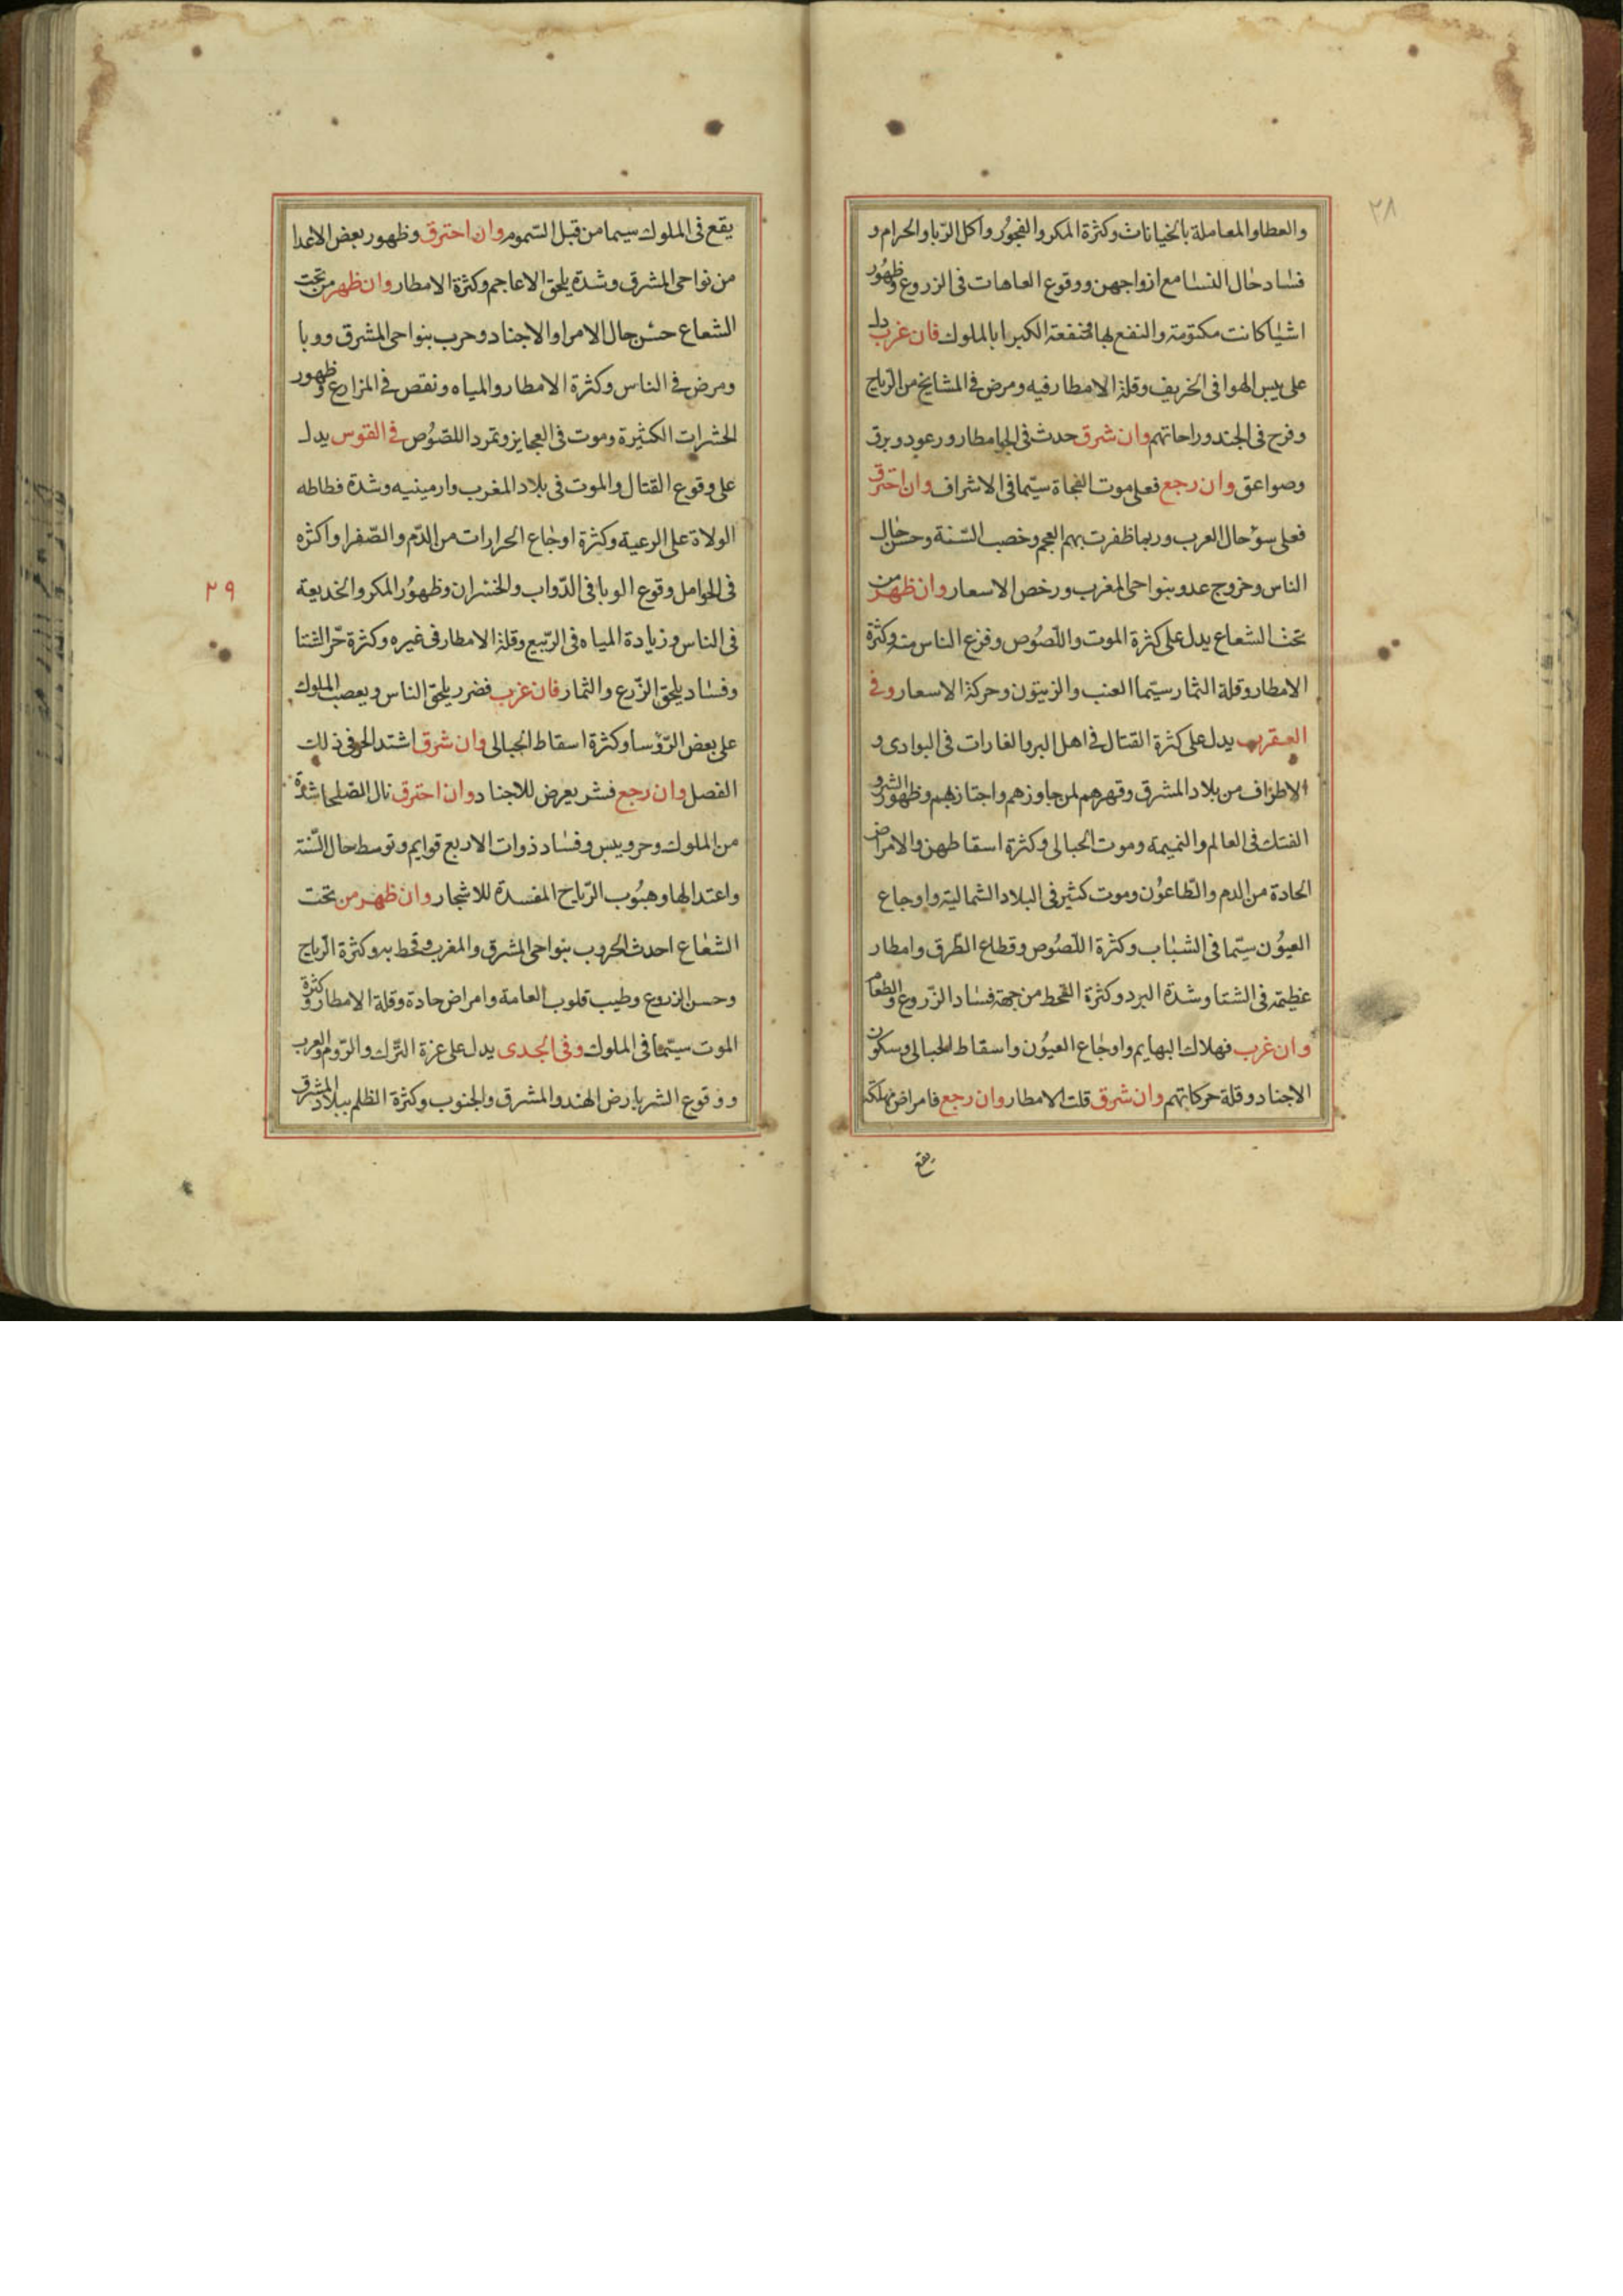 ٢٨
والعطا والمعاملة بالخيانات وكثرة المكر والفجور واكل الربا والحرام و
فساد حال النسا مع ازواجهن ووقوع العاهات فى الزروع وظهور
اشيا كانت مكتومة والنفع بها لمنفعة الكبرا بالملوك فان غرب دل
على يبس الهوا فى الخريف وقلة الامطار فيه ومرض فى المشايخ من الرياح
وفرح فى الجند وراحاتهم وان شرق حدث فى الجو امطار ورعود وبرق
وصواعق وان رجع فعلى موت الفجاة سيما فى الاشراف وان احترق
فعلى سؤ حال العرب وربما ظفرت بهم العجم وخصب السنة وحسن حال
الناس وخروج عدو بنواحى المغرب ورخص الاسعار وان ظهر من
تحت الشعاع يدل على كثرة الموت واللصوص وفزع الناس منه وكثرة
الامطار وقلة الثمار سيتما العنب والزيتون وحركة الاسعار وفى
العقرب يدل على كثرة القتال فى اهل البر والغارات فى البوادى و
الاطراف من بلاد المشرق وقهرهم لمن جاوزهم واجتاز بهم وظهور الشر و
الفتك فى العالم والنميمة وموت الحبالى وكثرة اسقاطهن والامراض
الحادة من الدم والطاعون وموت كثير فى البلاد الشمالية واوجاع
العيون سيما فى الشباب وكثرة اللصوص وقطاع الطرق وامطار
عظيمة فى الشتا وشدة البرد وكثرة القحط من جهة فساد الزروع والطعام
وان غرب فهلاك البهايم واوجاع العيون واسقاط الحبالى وسكون
الاجناد وقلة حركاتهم وان شرق قلت الامطار وان رجع فامراض مهلكة
يقع
يقع فى الملوك سيما من قبل السموم وان احترق وظهور بعض الاعدا
من نواحى المشرق وشدة يلحق الاعاجم وكثرة الامطار وان ظهر من تحت
الشعاع حسن حال الامرا والاجناد وحرب بنواحى المشرق ووبا
ومرض فى الناس وكثرة الامطار والمياه ونقص فى المزارع وظهور
الحشرات الكثيرة وموت فى العجايز وتمرد اللصوص فى القوس يدل
على وقوع القتال والموت فى بلاد المغرب وارمينيه وشدة فظاظه
الولاة على الرعية وكثرة اوجاع الحرارات من الدم والصفرا واكثره
فى الحوامل وقوع الوبا فى الدواب والخسران وظهور المكر والخديعة
٢٩
فى الناس وزيادة المياه فى الربيع وقلة الامطار فى غيره وكثرة حر الشتا
وفساد يلحق الزرع والثمار فان غرب فضرر يلحق الناس ويعصب الملوك
على بعض الرؤسا وكثرة اسقاط الحبالى وان شرق اشتد الحر فى ذلك
الفصل وان رجع فشر يعرض للاجناد وان احترق نال الصلحا شدة
من الملوك وحر ويبس وفساد ذوات الاربع قوايم وتوسط حال السنة
واعتدالها وهبوب الرياح المفسدة للاشجار وان ظهر من تحت
الشعاع احدث الحروب بنواحى المشرق والمغرب وقحط به وكثرة الرياح
وحسن الزروع وطيب قلوب العامة وامراض حادة وقلة الامطار وكثرة
الموت سيتما فى الملوك وفى الجدى يدل على عزة الترك والروم والعرب
ووقوع الشر بارض الهند والمشرق والجنوب وكثرة الظلم ببلاد المشرق